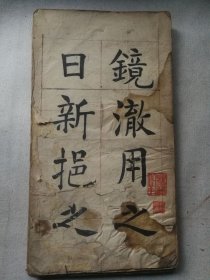 鏡澈用之
日新挹之